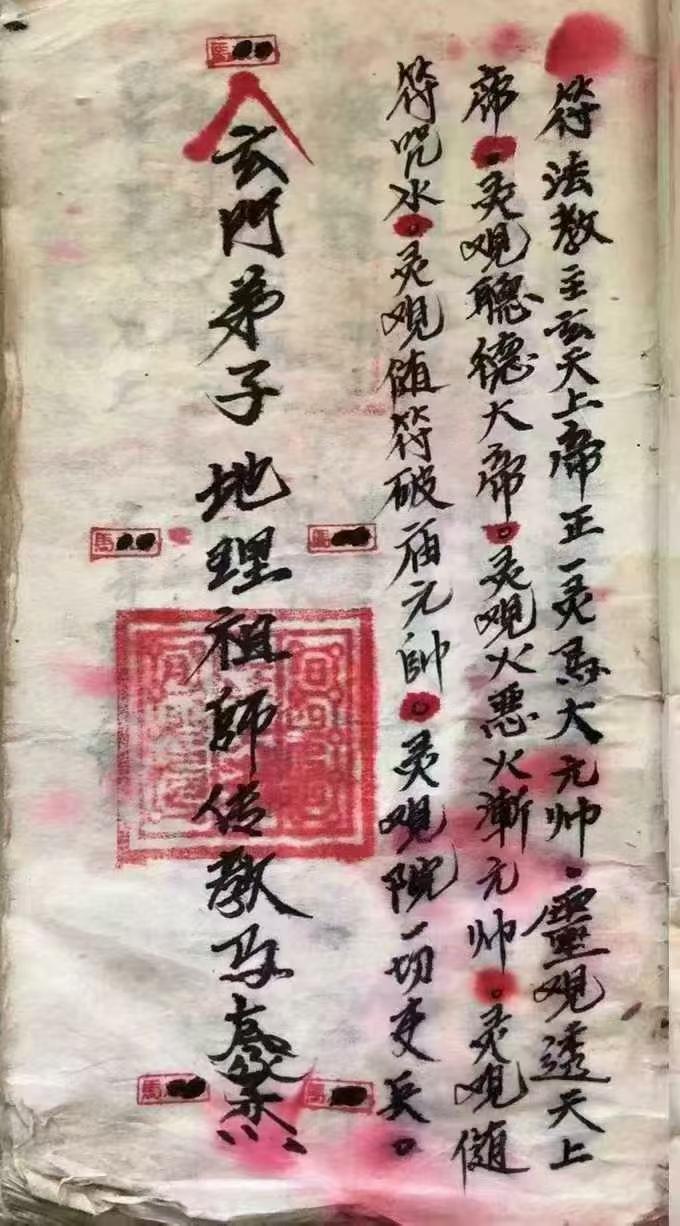 符法教主玄天上帝正一灵马大元帅。靈观透天上
帝。灵观聪德大帝。灵观火恶火漸元帅。灵观随
符咒水。灵观随符破庙元帥。灵观院一切吏兵。
玄門弟子地理祖師传教马
馬
馬
馬
馬
馬